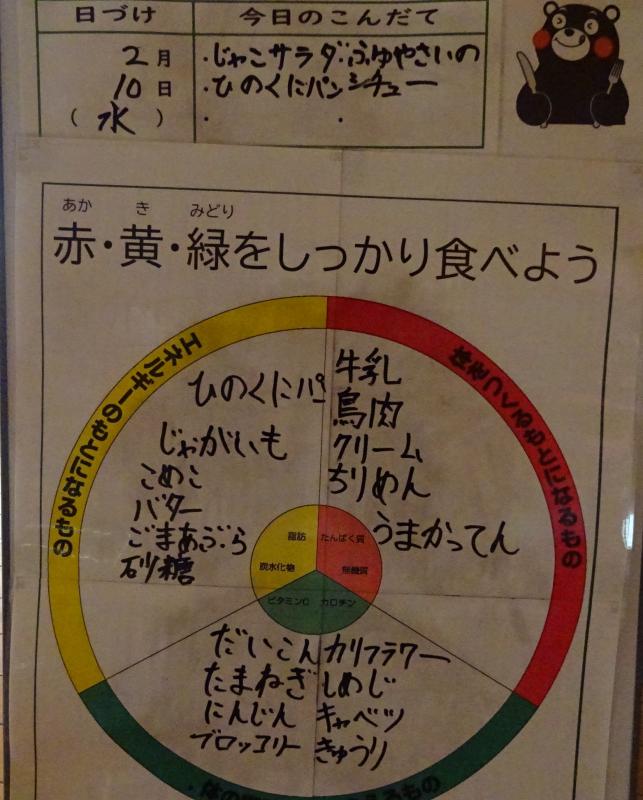 日づけ 今日のこんだて
2月 ・じゃこサラダ ・ふゆやさいの
10日 ・ひのくにパン シチュー
(水) ・ ・
あか き みどり
赤・黄・緑をしっかり食べよう
エネルギーのもとになるもの
体をつくるもとになるもの
ひのくにパ
じゃがいも
こめこ
バター
ごまあぶら
砂糖
牛乳
鳥肉
クリーム
ちりめん
うまかってん
脂肪 たんぱく質
炭水化物 無機質
ビタミンC カロチン
だいこん カリフラワー
たまねぎ しめじ
にんじん キャベツ
ブロッコリー きゅうり
体の えるもの